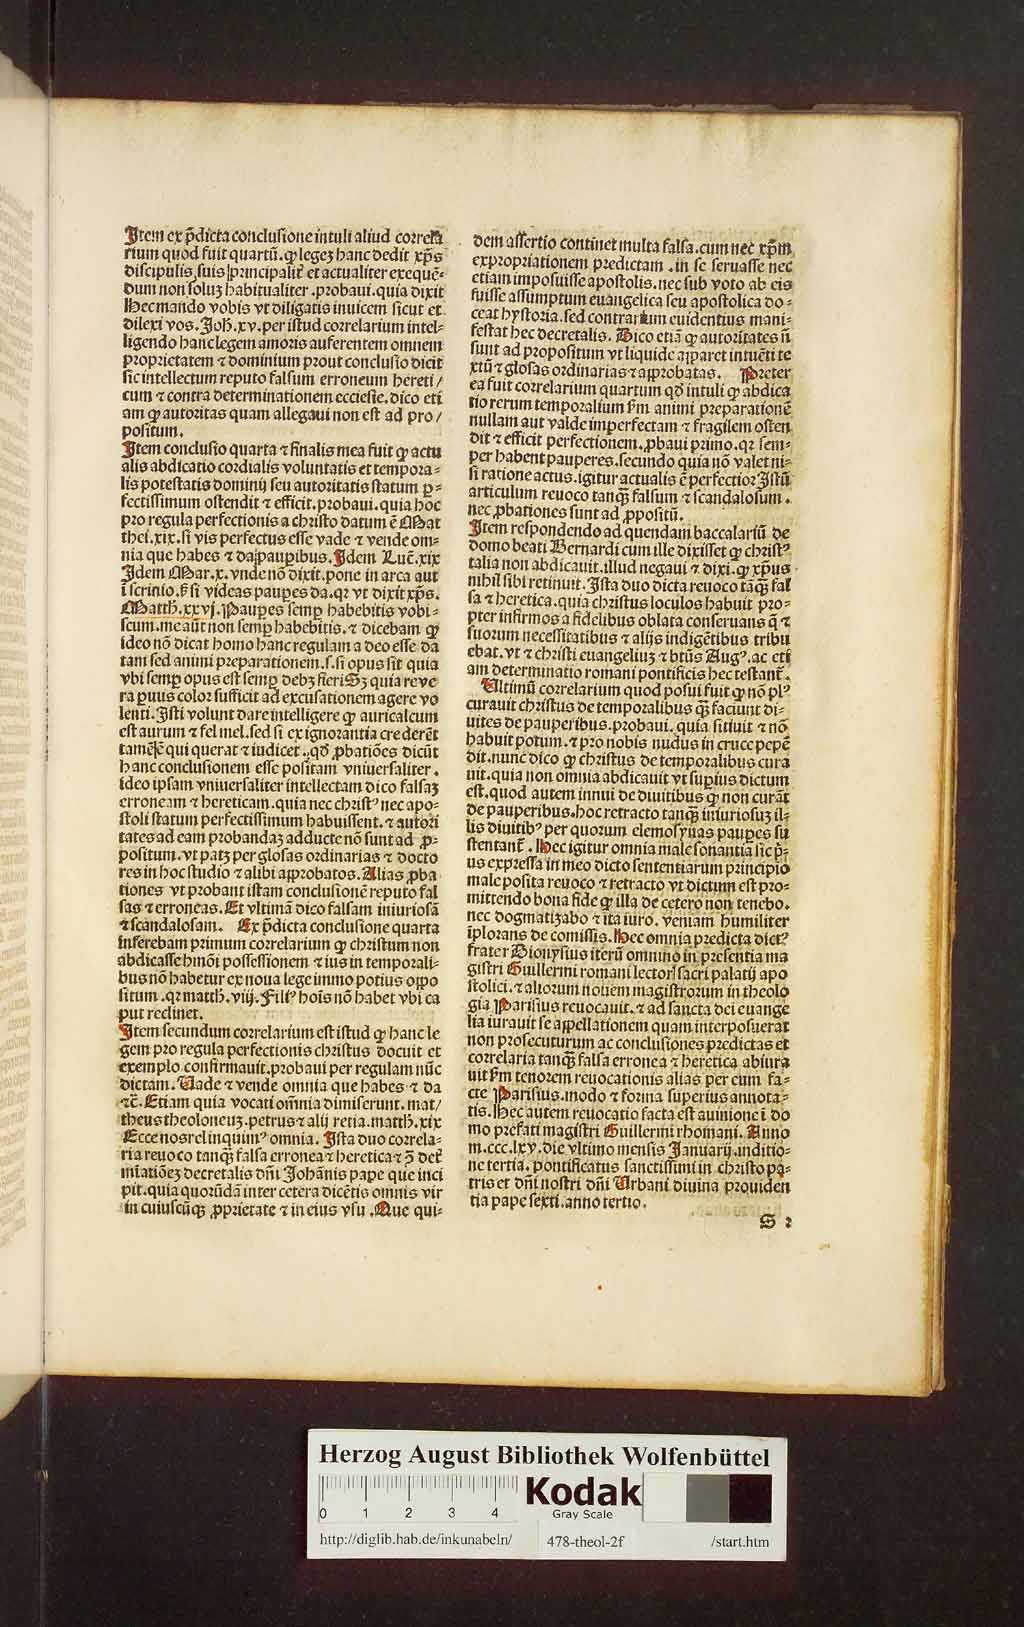 Item ex p̄dicta conclusione intuli aliud correla
rium quod fuit quartū. ꝙ legeȝ hanc dedit xp̄s
discipulis suis principalit᷑ et actualiter exequē⸗
dum non soluȝ habitualiter .probaui.quia dixit
Hec mando vobis vt diligatis inuicem sicut et
dilexi vos. Joh̄.xv.per istud correlarium intel⸗
ligendo hanc legem amoris auferentem omnem
proprietatem ⁊ dominium prout conclusio dicit
sic intellectum reputo falsum erroneum hereti/
cum ⁊ contra determinationem ecclesie.dico eti
am ꝙ autoritas quam allegaui non est ad pro/
positum.
Item conclusio quarta ⁊ finalis mea fuit ꝙ actu
alis abdicatio cordialis voluntatis et tempora⸗
lis potestatis dominij seu autoritatis statum ꝑ⸗
fectissimum ostendit ⁊ efficit.probaui.quia hoc
pro regula perfectionis a christo datum ē Mat
thei.xix.si vis perfectus esse vade ⁊ vende om⸗
nia que habes ⁊ da pauꝑibus. Idem Luc̄.xix
Idem Mar.x.vnde nō dixit.pone in arca aut
ī scrinio.ꝫ si videas pauꝑes da.qꝛ vt dixit xp̄s.
Matth̄.xxvj. Pauꝑes semꝑ habebitis vobi⸗
scum.me aūt non semꝑ habebitis.⁊ dicebam ꝙ
ideo nō dicat homo hanc regulam a deo esse da
tam sed animi preparationem.s.si opus sit quia
vbi semꝑ opus est semꝑ debȝ fieri Sȝ quia reue
ra ꝑuus color sufficit ad excusationem agere vo
lenti. Isti volunt dare intelligere ꝙ auricalcum
est aurum ⁊ fel mel.sed si ex ignorantia crederēt
tamē ē qui querat ⁊ iudicet.qd̄ ꝓbatiōes dicūt
hanc conclusionem esse positam vniuersaliter.
ideo ipsam vniuersaliter intellectam dico falsaȝ
erroneam ⁊ hereticam.quia nec christꝰ nec apo⸗
stoli statum perfectissimum habuissent.⁊ autori
tates ad eam probandaȝ adducte nō sunt ad ꝓ⸗
positum.vt patȝ per glosas ordinarias ⁊ docto
res in hoc studio ⁊ alibi approbatos. Alias ꝓba
tiones vt probant istam conclusionē reputo fal
sas ⁊ erroneas. Et vltimā dico falsam iniuriosā
⁊ scandalosam. Ex p̄dicta conclusione quarta
inferebam primum correlarium ꝙ christum non
abdicasse hmōi possessionem ⁊ ius in temporali⸗
bus nō habetur ex noua lege immo potius oppo
situm.qꝛ matth̄.viij. Filiꝰ hoīs nō habet vbi ca
put reclinet.
Item secundum correlarium est istud ꝙ hanc le
gem pro regula perfectionis christus docuit et
exemplo confirmauit.probaui per regulam nūc
dictam. Vade ⁊ vende omnia que habes ⁊ da
⁊c̄. Etiam quia vocati omnia dimiserunt. mat/
theus theoloneuȝ.petrus ⁊ alij retia.matth̄.xix
Ecce nos relinquimꝰ omnia. Ista duo correla⸗
ria reuoco tanq̄ȝ falsa erronea ⁊ heretica ⁊ ꝯ det᷑
mīatiōeȝ decretalis dn̄i Johānis pape que inci
pit.quia quorūdā inter cetera dicētis omnis vir
in cuiuscūqȝ ꝓprietate ⁊ in eius vsu . Que qui⸗
dem assertio continet multa falsa.cum nec xp̄m
expropriationem predictam .in se seruasse nec
etiam imposuisse apostolis.nec sub voto ab eis
fuisse assumptum euangelica seu apostolica do⸗
ceat hystoria.sed contrarium euidentius mani⸗
festat hec decretalis. Dico etiā ꝙ autoritates n̄
sunt ad propositum vt liquide apparet intuēti te
xtū ⁊ glosas ordinarias ⁊ approbatas. Preter
ea fuit correlarium quartum qd̄ intuli ꝙ abdica
tio rerum temporalium ẜm animi preparationē
nullam aut valde imperfectam ⁊ fragilem osten
dit ⁊ efficit perfectionem.ꝓbaui primo.qꝛ sem⸗
per habent pauperes.secundo quia nō valet ni⸗
si ratione actus.igitur actualis ē perfectior Istū
articulum reuoco tanqȝ falsum ⁊ scandalosum .
nec ꝓbationes sunt ad ꝓpositū.
Item respondendo ad quendam baccalariū de
domo beati Bernardi cum ille dixisset ꝙ christꝰ
talia non abdicauit.illud negaui ⁊ dixi.ꝙ xp̄us
nihil sibi retinuit. Ista duo dicta reuoco tāqȝ fal
sa ⁊ heretica.quia christus loculos habuit pro⸗
pter infirmos a fidelibus oblata conseruans q̄ ⁊
suorum necessitatibus ⁊ alijs indigētibus tribu
ebat.vt ⁊ christi euangeliuȝ ⁊ btūs Augꝰ.ac eti
am determinatio romani pontificis hec testant᷑.
Vltimū correlarium quod posui fuit ꝙ nō plꝰ
curauit christus de temporalibus qȝ faciunt di⸗
uites de pauperibus.probaui. quia sitiuit ⁊ nō
habuit potum.⁊ pro nobis nudus in cruce pepē
dit.nunc dico ꝙ christus de temporalibus cura
uit.quia non omnia abdicauit vt suꝑius dictum
est.quod autem innui de diuitibus ꝙ non curāt
de pauperibus.hoc retracto tanqȝ iniuriosuȝ il⸗
lis diuitibꝰ per quorum elemosynas pauꝑes su
stentant᷑ . Hec igitur omnia male sonantia sic p̄⸗
us expressa in meo dicto sententiarum principio
male posita reuoco ⁊ retracto vt dictum est pro⸗
mittendo bona fide ꝙ illa de cetero non tenebo.
nec dogmatizabo ⁊ ita iuro. veniam humiliter
īplorans de comissis. Hec omnia predicta dictꝰ
frater Dionysius iterū omnino in presentia ma
gistri Guillermi romani lectoris sacri palatij apo
stolici.⁊ aliorum nouem magistrorum in theolo
gia Parisius reuocauit.⁊ ad sancta dei euange
lia iurauit se appellationem quam interposuerat
non prosecuturum ac conclusiones predictas et
correlaria tanqȝ falsa erronea ⁊ heretica abiura
uit ẜm tenorem reuocationis alias per eum fa⸗
cte Parisius.modo ⁊ forma superius annota⸗
tis. Hec autem reuocatio facta est auinione ī do
mo prefati magistri Guillermi rhomani. Anno
m.ccc.lxv.die vltimo mensis Januarij.inditio⸗
ne tertia. pontificatus sanctissimi in christo pa⸗
tris et dn̄i nostri dn̄i Urbani diuina prouiden
tia pape sexti.anno tertio.
S 2
Herzog August Bibliothek Wolfenbüttel
0 1 2 3 4
Kodak
Gray Scale
http://diglib.hab.de/inkunabeln/ 478-theol-2f /start.htm